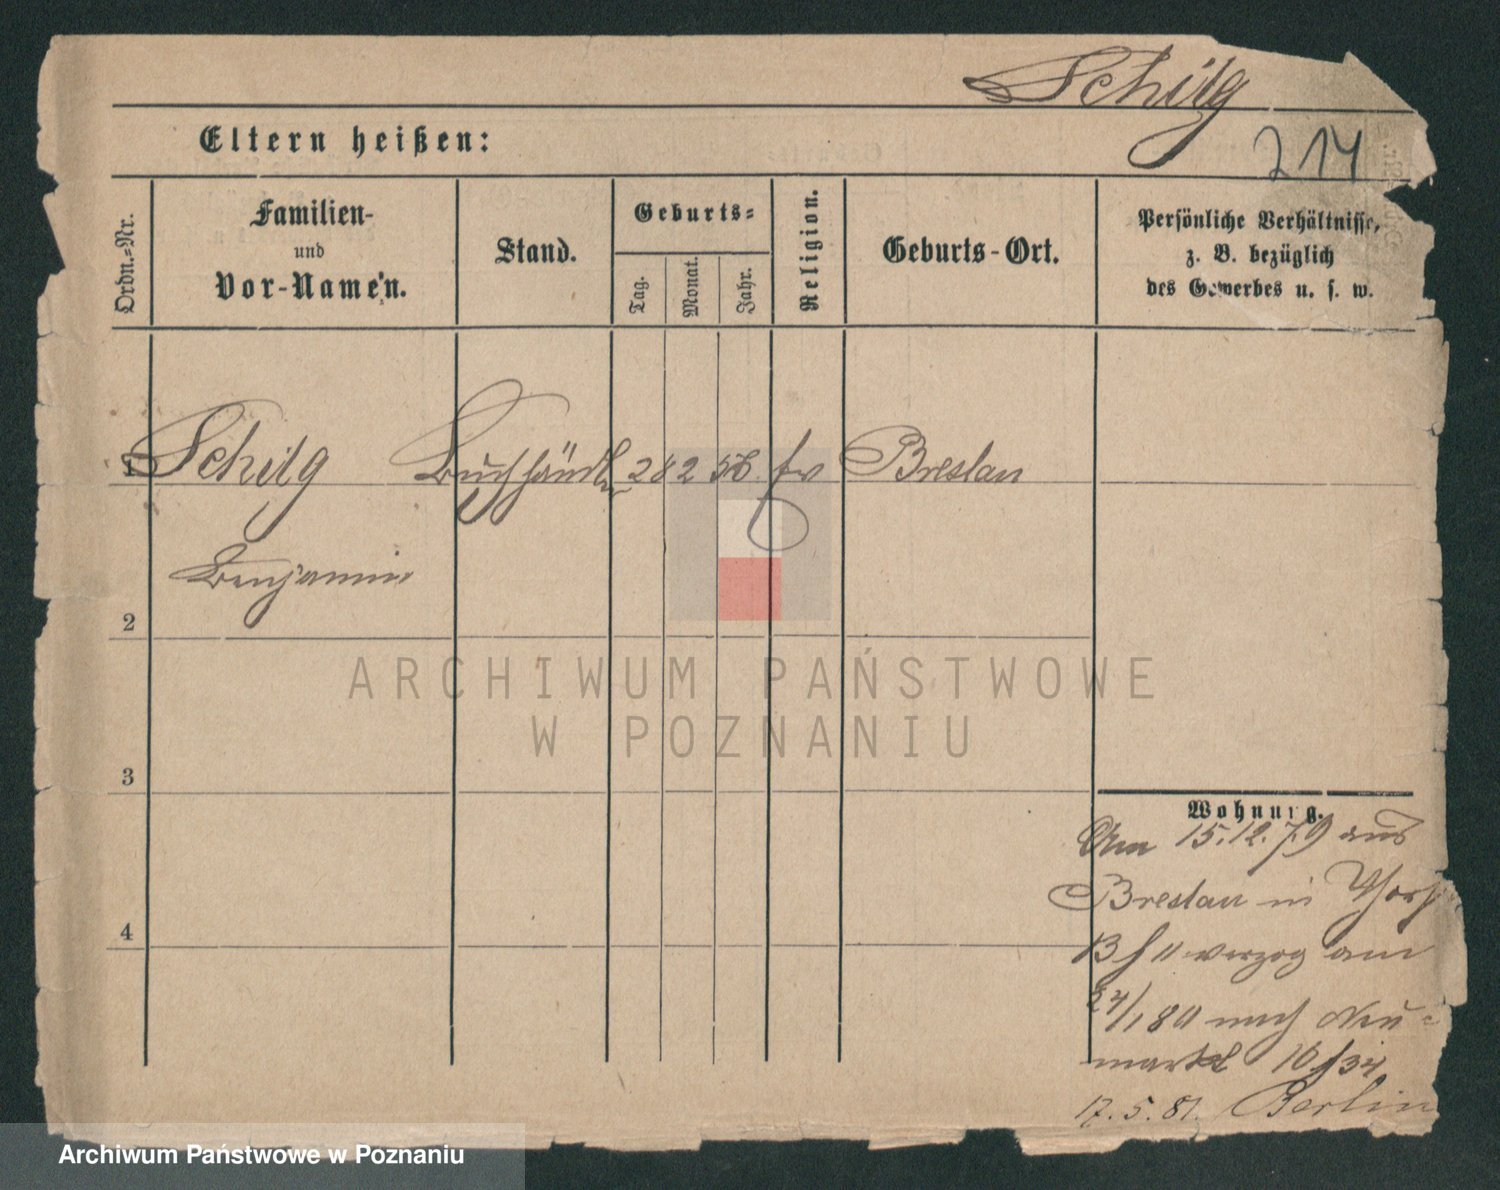 Schilg
Eltern heißen:
214
Ordn.-Nr.
Familien-
und
Vor-Namen.
Stand.
Geburts-
Tag.
Monat.
Jahr.
Religion.
Geburts-Ort.
Persönliche Verhältnisse,
z. B. bezüglich
des Gewerbes u. s. w.
1 Schilg Buchhändler 28 2 56. Breslau
Benjamin
2
ARCHIWUM PAŃSTWOWE
W POZNANIU
3
Wohnung.
Am 15.12.79 aus
Breslau in
verzog am
24/1 80 nach Neu-
markt 16/34
4
17.5.81. Berlin
Archiwum Państwowe w Poznaniu